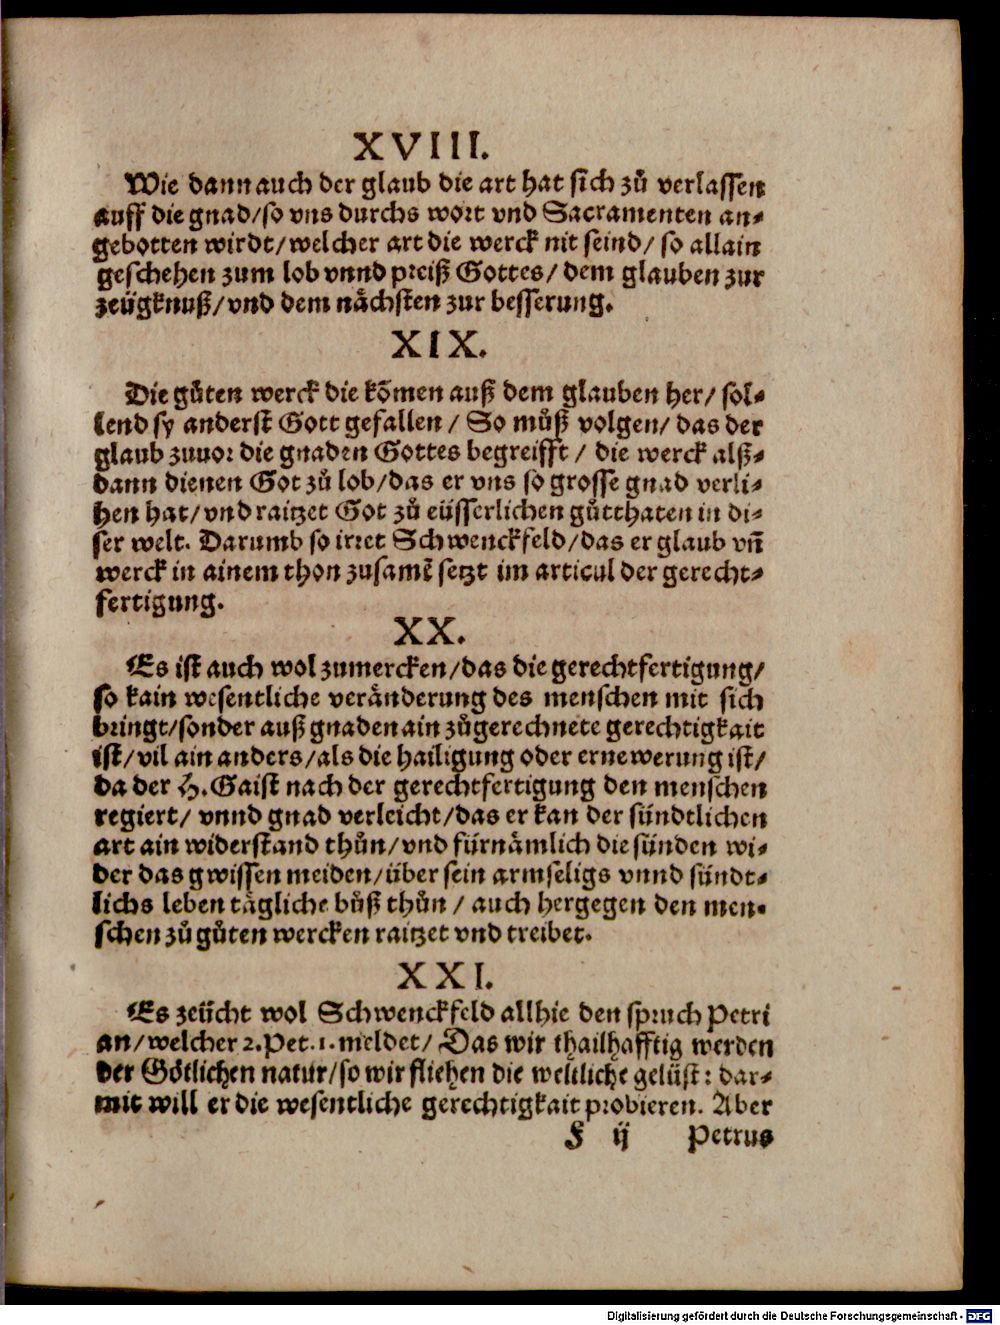 XVIII.
Wie dann auch der glaub die art hat sich zů verlassen
auff die gnad/so vns durchs wort vnd Sacramenten an-
gebotten wirdt/welcher art die werck nit seind/ so allain
geschehen zum lob vnnd preiß Gottes/ dem glauben zur
zeügknuß/vnd dem nåchsten zur besserung.
XIX.
Die gůten werck die kõmen auß dem glauben her/ sol-
lend sy anderst Gott gefallen / So můß volgen/ das der
glaub zuuor die gnaden Gottes begreifft / die werck alß-
dann dienen Got zů lob/das er vns so grosse gnad verli-
hen hat/vnd raitzet Got zů eüsserlichen gůtthaten in di-
ser welt. Darumb so irret Schwenckfeld/das er glaub vñ
werck in ainem thon zusamẽ setzt im articul der gerecht-
fertigung.
XX.
Es ist auch wol zumercken/das die gerechtfertigung/
so kain wesentliche veränderung des menschen mit sich
bringt/sonder auß gnaden ain zůgerechnete gerechtigkait
ist/vil ain anders/als die hailigung oder ernewerung ist/
da der H. Gaist nach der gerechtfertigung den menschen
regiert/ vnnd gnad verleicht/das er kan der sündtlichen
art ain widerstand thůn/vnd fürnämlich die sünden wi-
der das gwissen meiden/über sein armseligs vnnd sündt-
lichs leben tägliche bůß thůn / auch hergegen den men-
schen zů gůten wercken raitzet vnd treibet.
XXI.
Es zeücht wol Schwenckfeld allhie den spruch Petri
an/welcher 2.Pet.1.meldet/ Das wir thailhafftig werden
der Götlichen natur/so wir fliehen die weltliche gelüst: dar-
mit will er die wesentliche gerechtigkait probieren. Aber
F ij Petrus
Digitalisierung gefördert durch die Deutsche Forschungsgemeinschaft - DFG